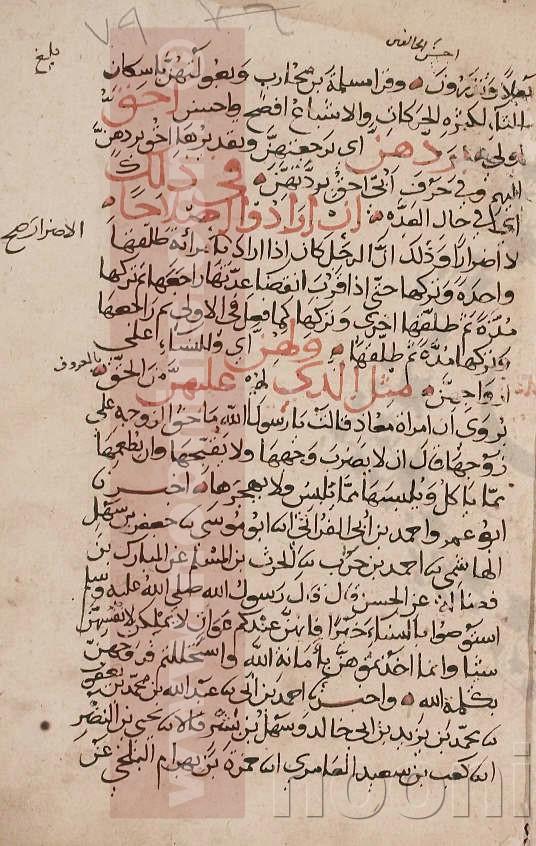 ٧٩
احسن الخالقين
بلغ
بعلا وتذرون وقرا مسلمة بن محارب وبعولتهن باسكان
التاء لكثرة الحركات والاشباع افصح واحسن احق
بردهن اي برجعتهن وتقديرها احق بردهن
اليهم وفي حرف ابي احق بردتهن في ذلك
اي في حال العدة ان ارادوا اصلاحا
لا اضرارا وذلك ان الرجل كان اذا اراد بامرأته طلقها
الاضرار صح
واحدة وتركها حتى اذا قرب انقضا عدتها راجعها ثم تركها
مدة ثم طلقها اخرى وتركها كما فعل في الاولى ثم راجعها
وتركها مدة ثم طلقها ولهن اي وللنساء على
ازواجهن مثل الذي عليهن لهم من الحق
بالمعروف
نروي ان امراة معاذ قالت يا رسول الله ما حق الزوجه على
زوجها قال ان لا يضرب وجهها ولا يقبحها وان يطعمها
مما ياكل ويلبسها مما يلبس ولا يهجرها اخبرنا
ابو عمرو احمد بن ابي الفراتي انا ابو موسى نا جعفر بن سهل
الهاشمي نا احمد بن حرب نا الحرث بن المسلم عن المبارك بن
فضالة عن الحسن قال قال رسول الله صلى الله عليه وسلم
استوصوا بالنساء خيرا فانهن عندكم عوان لا يملكن لانفسهن
شيئا وانما اخذتموهن بأمانة الله واستحللتم فروجهن
بكلمة الله واخبرنا احمد بن ابي نا عبدالله بن محمد بن يعقوب
نا محمد بن يزيد بن ابي خالد وسهل بن بشر قالا نا يحيى بن النضر
انا كعب بن سعيد العامري انا حمزة بن بهرام البلخي عن
nooni